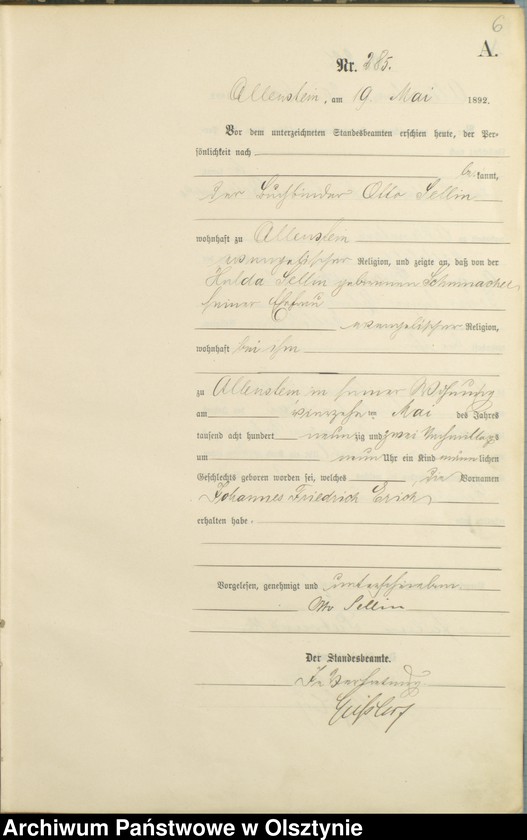 6
A.
Nr. 285.
Allenstein, am 19. Mai 1892.
Vor dem unterzeichneten Standesbeamten erschien heute, der Per-
sönlichkeit nach
be kannt,
der Buchbinder Otto Sellin
wohnhaft zu Allenstein
evangelischer Religion, und zeigte an, daß von der
Hulda Sellin geborenen Schumacher,
seiner Ehefrau
evangelischer Religion,
wohnhaft bei ihm
zu Allenstein in seiner Wohnung
am Mai des Jahres
tausend acht hundert neunzig und zwei Nachmittags
um neun Uhr ein Kind männlichen
Geschlechts geboren worden sei, welches die Vornamen
Johannes Friedrich Erich
erhalten habe.
Vorgelesen, genehmigt und unterschrieben
Otto Sellin
Der Standesbeamte.
In Vertretung
Archiwum Państwowe w Olsztynie